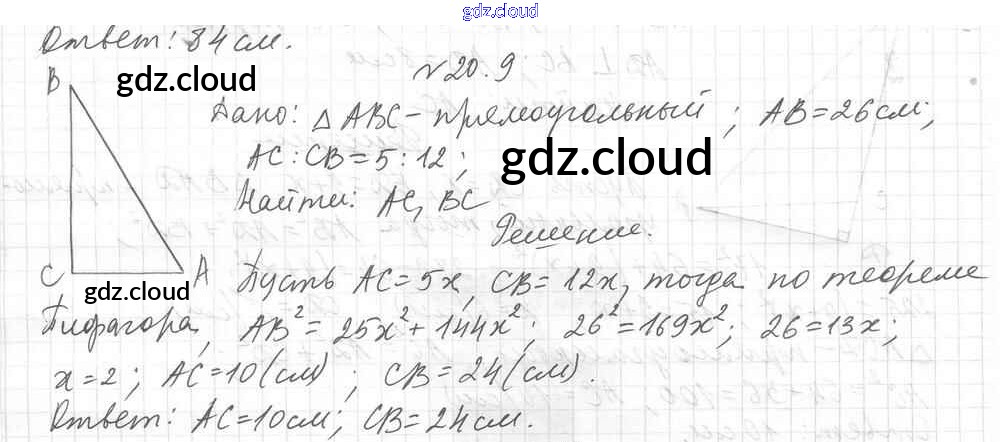 gdz.cloud
Ответ: 84 см.
№20.9
B
gdz.cloud
Дано: △ABC - прямоугольный; AB=26 см;
AC:CB=5:12;
gdz.cloud
Найти: AC, BC
Решение.
C A
gdz.cloud
Пусть AC=5x, CB=12x, тогда по теореме
Пифагора, AB²=25x²+144x²; 26²=169x²; 26=13x;
x=2; AC=10(см); CB=24(см).
Ответ: AC=10см; CB=24см.